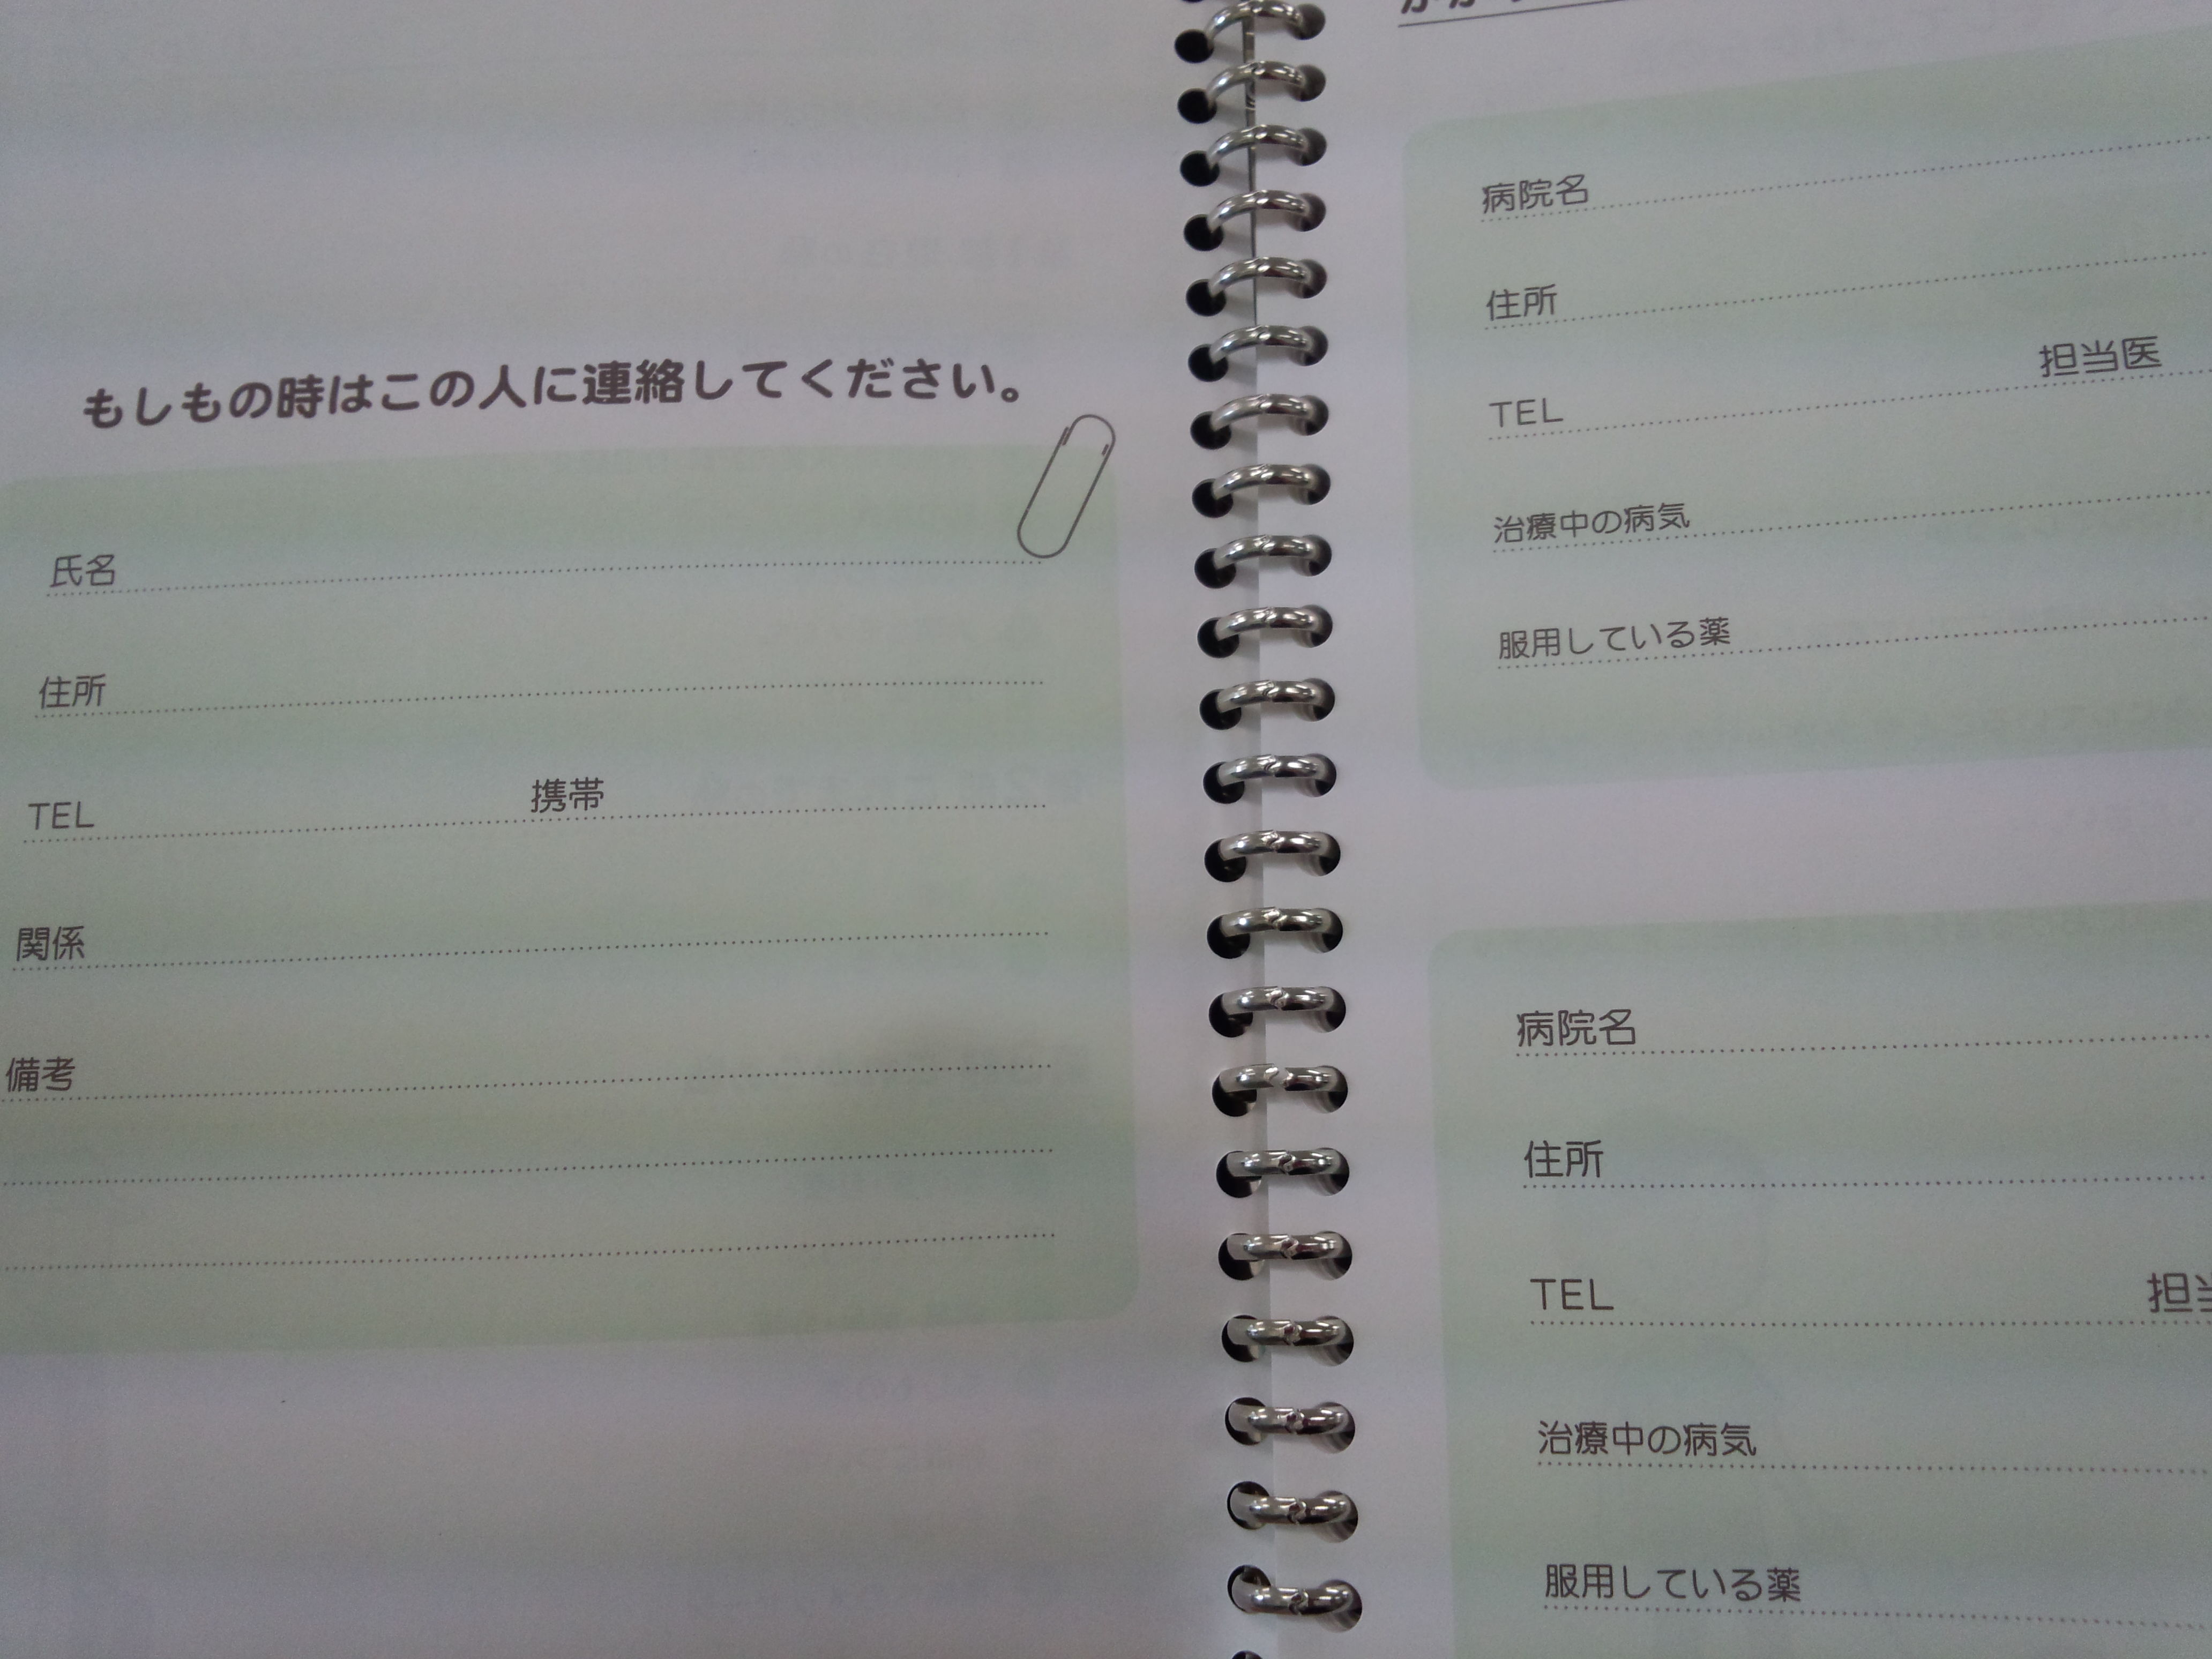 もしもの時はこの人に連絡してください。
氏名
住所
TEL 携帯
関係
備考
病院名
住所
TEL 担当医
治療中の病気
服用している薬
病院名
住所
TEL 担当
治療中の病気
服用している薬